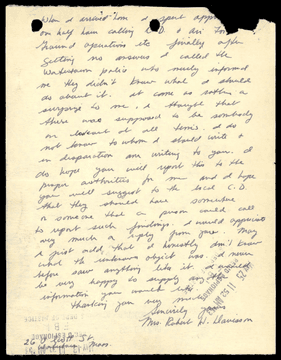 When I arrived home I spent approx
one half hour calling C.D. & Air Force
Ground operations etc finally after
getting no answer I called the
Watertown police who merely informed
me they didn't know what I should
do about it. It came as rather a
surprise to me. I thought that
there was supposed to be somebody
on at all times. I do
not know to whom I should write &
in desperation am writing to you. I
do hope you will report this to the
proper authorities for me and I hope
you will suggest to the local C.D.
that they should have someone
or someone that a person could call
to report such findings. I would appreciate
very much a reply from you. May
I just add, that I honestly don't know
what the unknown object was. I never
before saw anything like it. I would
be very happy to supply any
information you would like.
Thanking you very much
Sincerely yours
Mrs. Robert W.
26 St
Mass.